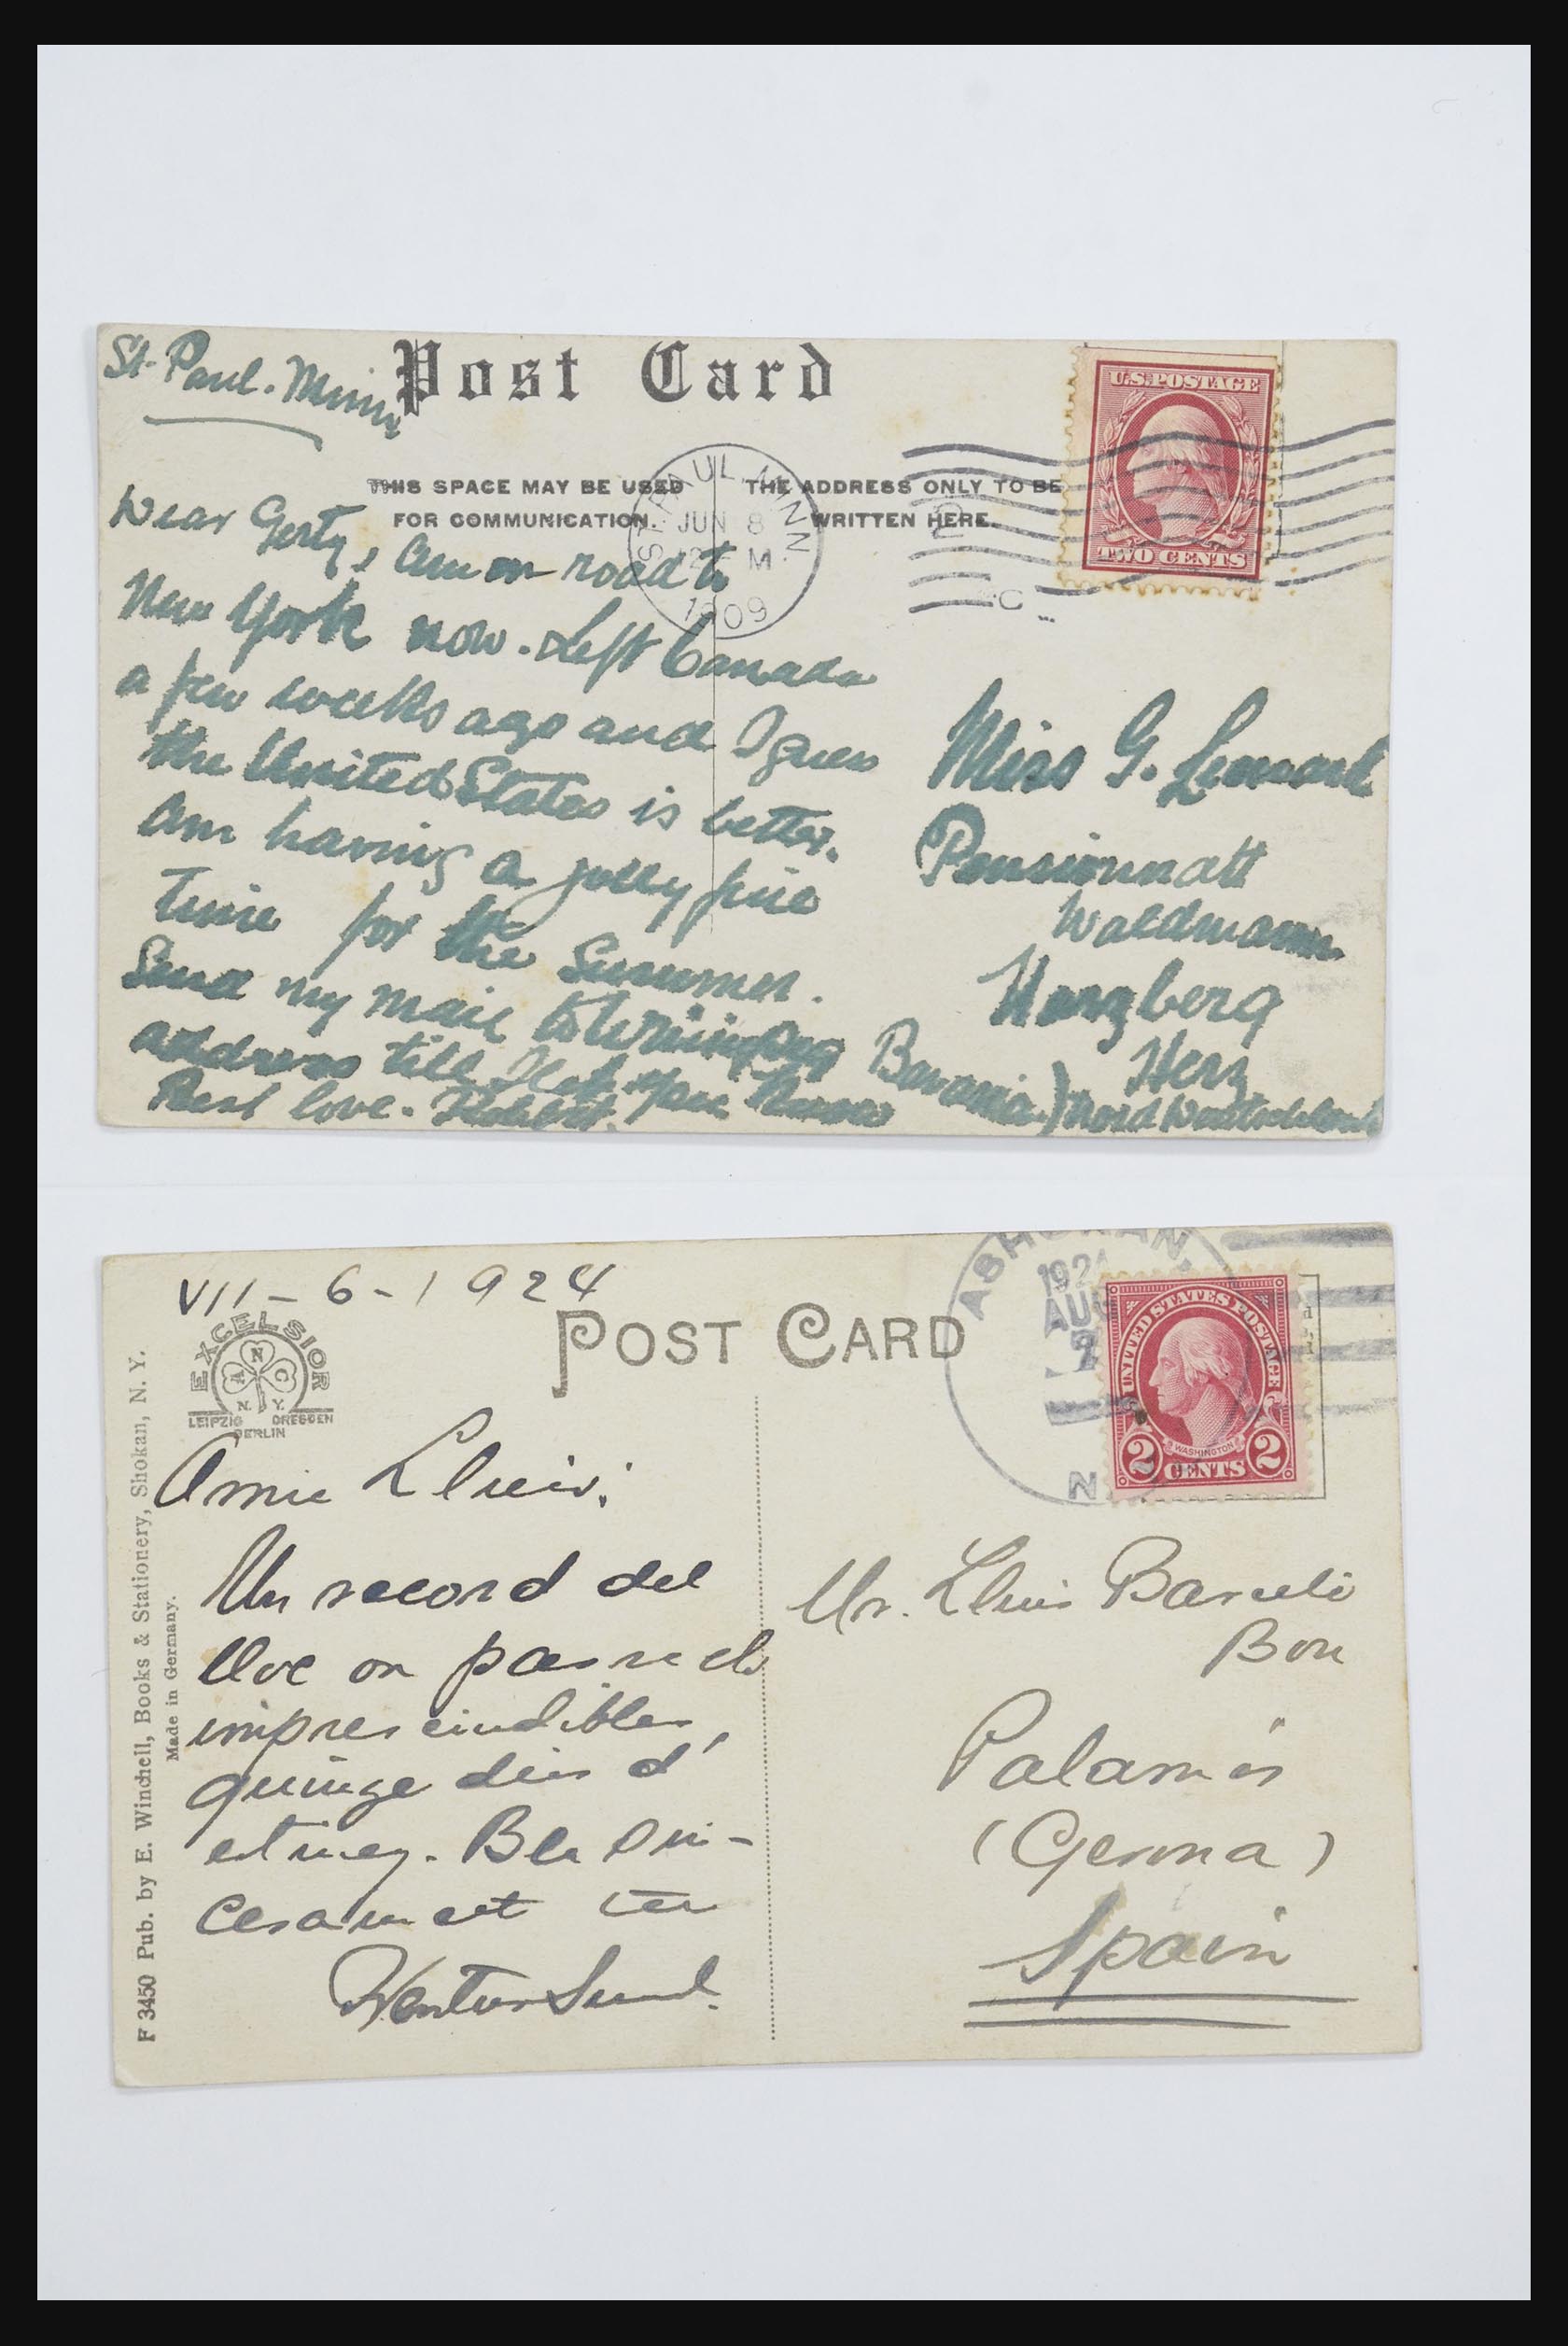 St. Paul. Minn
Post Card
THIS SPACE MAY BE USED
FOR COMMUNICATION.
THE ADDRESS ONLY TO BE
WRITTEN HERE.
ST. PAUL, MINN.
JUN 8
M
1909
U.S. POSTAGE
TWO CENTS
Dear Gerty, Am on road to
New York now. Left Canada
a few weeks ago and I guess
the United States is better.
Am having a jolly fine
time for the Summer.
Send my mail to Winnipeg
address till I let you know
Best love. Robert.
Miss G.
Pensionnatt
Waldmann
Harzberg
Herz
Bavaria)
VII - 6 - 1924
POST CARD
EXCELSIOR
A N C
N. Y.
LEIPZIG DRESDEN
BERLIN
F 3450 Pub. by E. Winchell, Books & Stationery, Shokan, N. Y.
Made in Germany.
ASHOKAN
1924
AUG
7
N
UNITED STATES POSTAGE
WASHINGTON
2 CENTS 2
Amic Lluis:
Un record del
lloc on passo els
imprescindibles
quinze dies d'
estiueg. Ben sin-
cerament teu
Ventura
Mr. Lluis Barceló
Bou
Palamós
(Gerona)
Spain